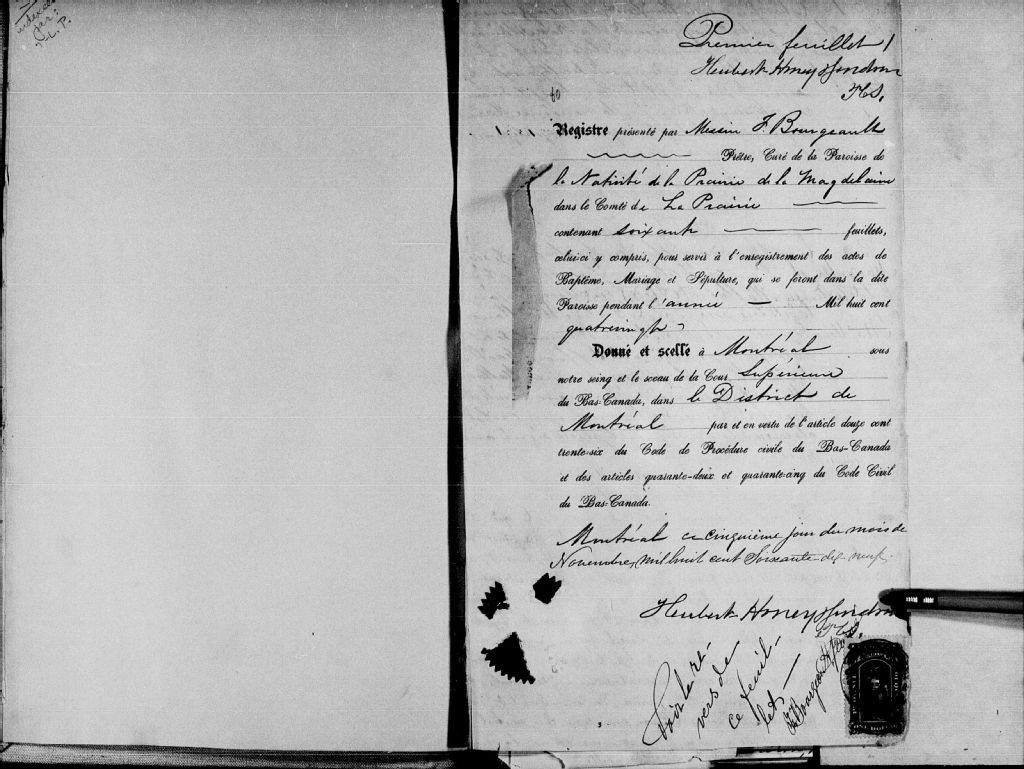 indexé
par:
L. P.
Premier feuillet /
Hubert, Honey & Gendron
P.C.S.
60
Registre présenté par Messire F. Bourgeault
Prêtre, Curé de la Paroisse de
la Nativité de la Prairie de la Magdelaine
dans le Comté de La Prairie
contenant soixante feuillets,
celui-ci y compris, pour servir à l'enregistrement des actes de
Baptême, Mariage et Sépulture, qui se feront dans la dite
Paroisse pendant l'année Mil huit cent
quatrevingt
Donné et scellé à Montréal sous
notre seing et le sceau de la Cour Supérieure
du Bas-Canada, dans le District de
Montréal par et en vertu de l'article douze cent
trente-six du Code de Procédure civile du Bas-Canada
et des articles quarante-deux et quarante-cinq du Code Civil
du Bas-Canada.
Montréal ce cinquième jour du mois de
Novembre, mil huit cent Soixante-dix-neuf.
Hubert, Honey & Gendron
P.C.S.
Voir le re-
vers de
ce feuil-
let